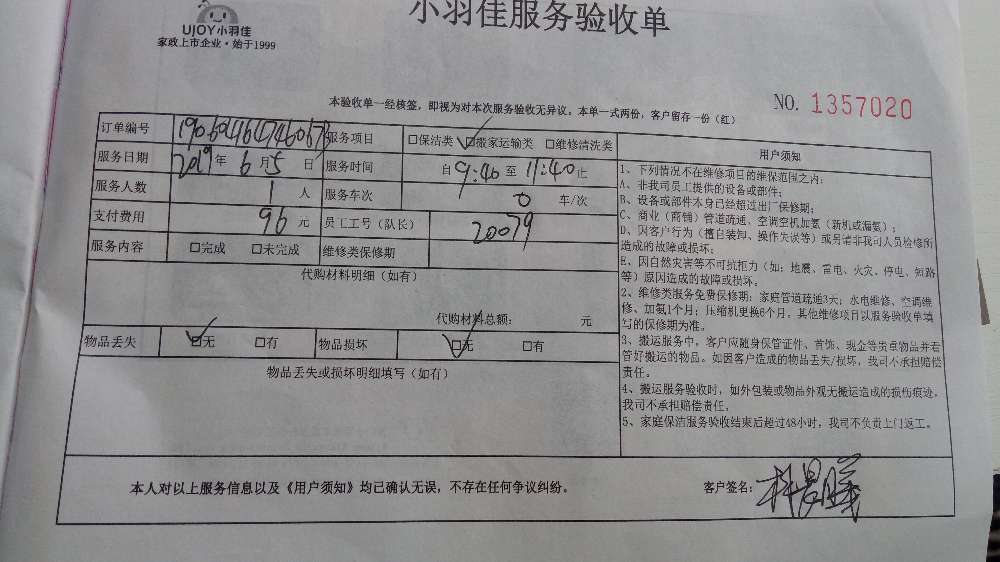 小羽佳服务验收单
UJOY小羽佳
家政上市企业·始于1999
本验收单一经核签，即视为对本次服务验收无异议。本单一式两份，客户留存一份（红）
NO. 1357020
订单编号 服务项目 □保洁类 ☑搬家运输类 □维修清洗类
服务日期 2019 年 6 月 5 日 服务时间 自 9:40 至 11:40 止
服务人数 1 人 服务车次 0 车/次
支付费用 96 元 员工工号（队长） 20079
服务内容 □完成 □未完成 维修类保修期
代购材料明细（如有）
代购材料总额： 元
物品丢失 ☑无 □有 物品损坏 ☑无 □有
物品丢失或损坏明细填写（如有）
用户须知
1、下列情况不在维修项目的维保范围之内：
A、非我司员工提供的设备或部件；
B、设备或部件本身已经超过出厂保修期；
C、商业（商铺）管道疏通、空调空机加氨（新机或漏氨）；
D、因客户行为（擅自装卸、操作失误等）或另请非我司人员检修所
造成的故障或损坏；
E、因自然灾害等不可抗拒力（如：地震、雷电、火灾、停电、短路
等）原因造成的故障或损坏。
2、维修类服务免费保修期：家庭管道疏通3天；水电维修、空调维
修、加氨1个月；压缩机更换6个月，其他维修项目以服务验收单填
写的保修期为准。
3、搬运服务中，客户应随身保管证件、首饰、现金等贵重物品并看
管好搬运的物品。如因客户造成的物品丢失/损坏，我司不承担赔偿
责任。
4、搬运服务验收时，如外包装或物品外观无搬运造成的损伤痕迹，
我司不承担赔偿责任。
5、家庭保洁服务验收结束后超过48小时，我司不负责上门返工。
本人对以上服务信息以及《用户须知》均已确认无误，不存在任何争议纠纷。 客户签名：